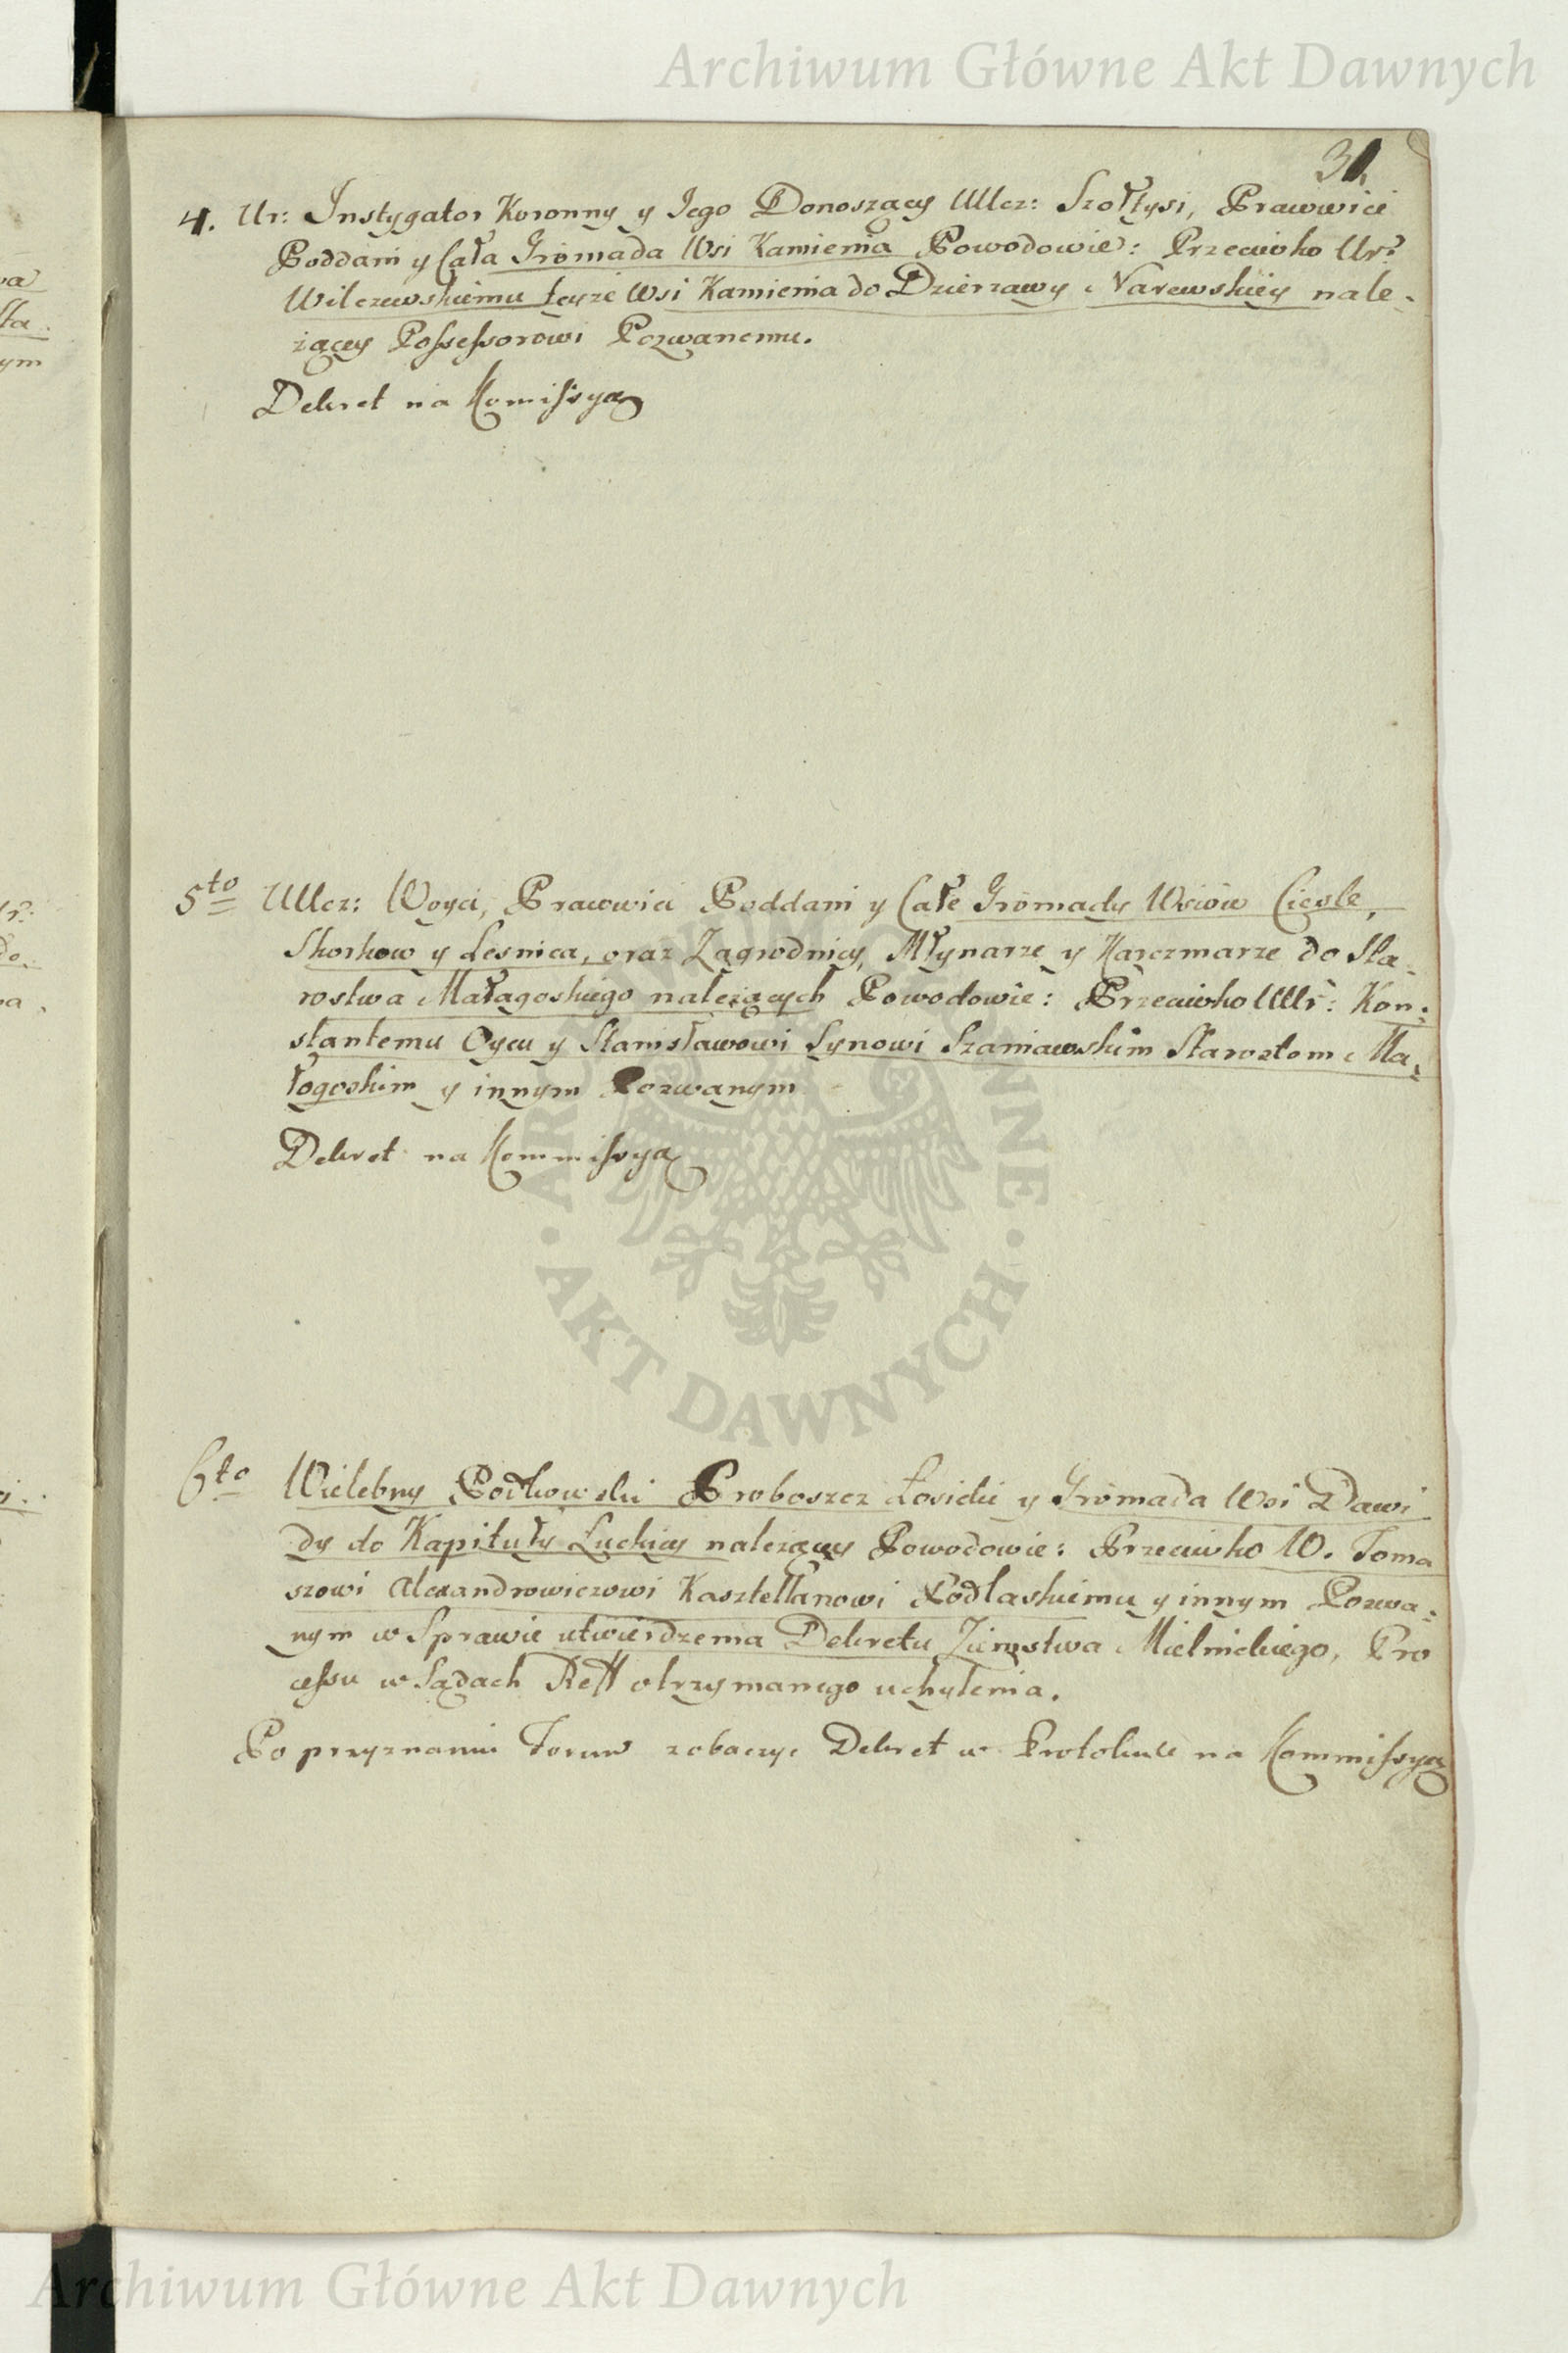 Archiwum Główne Akt Dawnych
31.
4. Ur: Instygator Koronny y Jego Donoszący Ulcz: Szołtysi, Prawowici
Poddani y Cała Gromada Wsi Kamienia Powodowie: Przeciwko Ur:
Wilczewskiemu teyże Wsi Kamienia do Dzierzawy Narewskiey nale-
żącey Possessorowi Pozwanemu.
Dekret na Komissyą
5to Ulcz: Woyci, Prawowici Poddani y Całe Gromady Wsiów Ciesle,
Skorkow y Lesnica, oraz Zagrodnicy, Młynarze y Karczmarze do Sta-
rostwa Małagoskiego należących Powodowie: Przeciwko UUr: Kon-
stantemu Oycu y Stanisławowi Synowi Szaniawskim Starostom Ma-
łogoskim y innym Pozwanym
Dekret na Kommissyą
6to Wielebny Podkowski Proboszcz Łosicki y Gromada Wsi Dawi
dy do Kapituły Luckiey należący Powodowie: Przeciwko W. Toma
szowi Alexandrowiczowi Kasztellanowi Podlaskiemu y innym Pozwa-
nym w Sprawie utwierdzenia Dekretu Ziemstwa Mielnickiego, Pro
cessu w Sądach Reff otrzymanego uchylenia.
Po przyznaniu Forum zobaczyc Dekret w Protokule na Kommissyą
ARCHIWUM GŁÓWNE · AKT DAWNYCH ·
Archiwum Główne Akt Dawnych